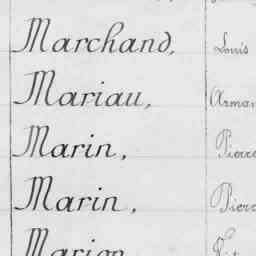 Marchand, Louis
Mariau, Arman
Marin, Pierre
Marin, Pierre
Marion